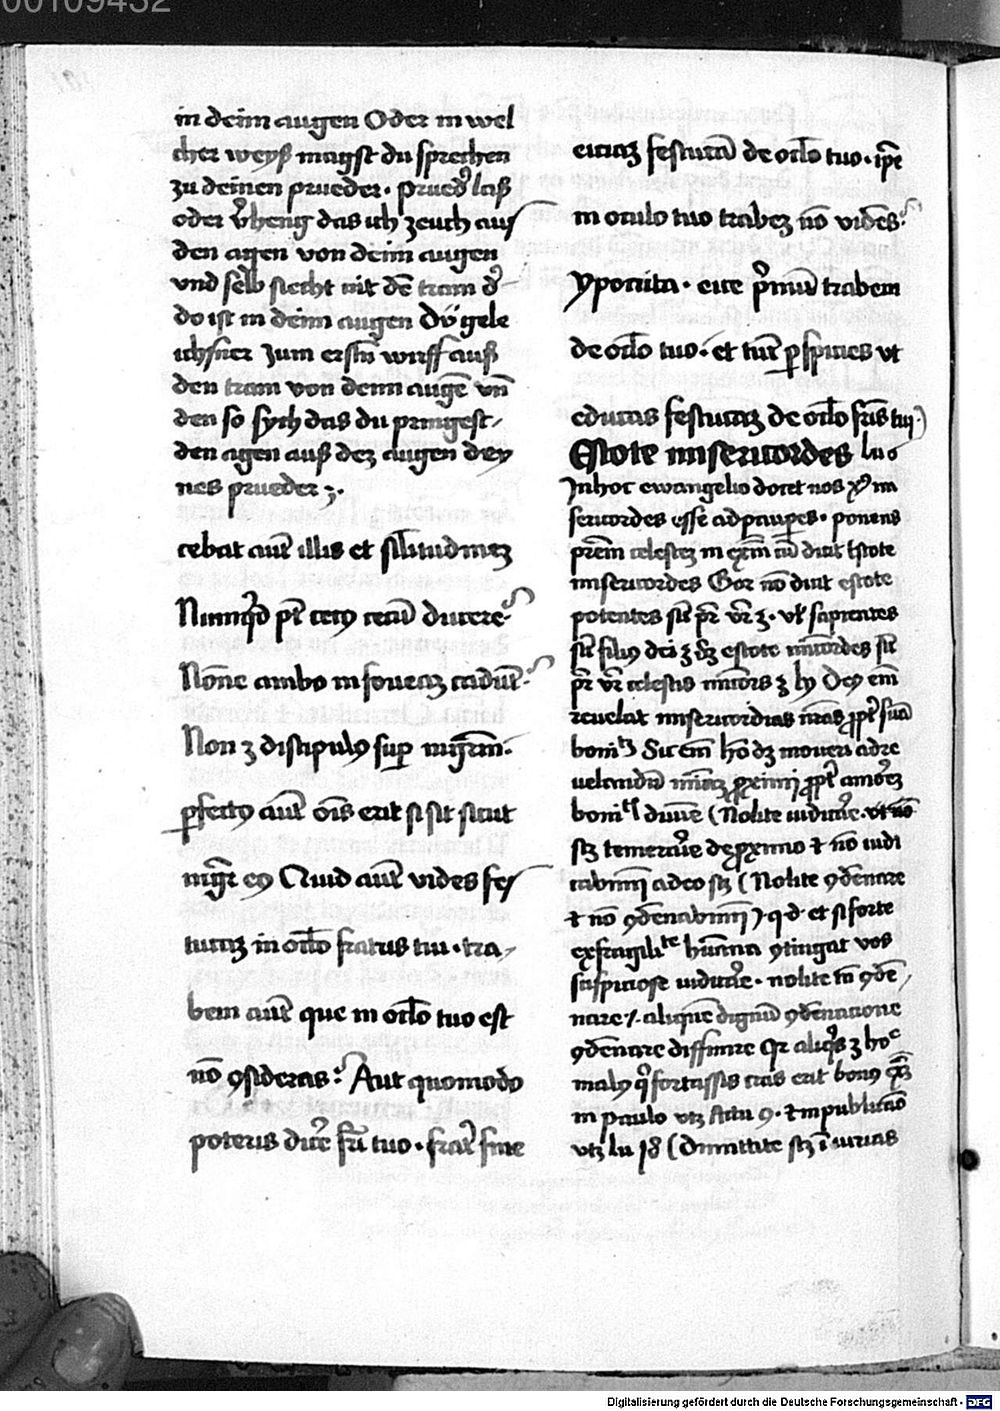 00109432
in deim augen Oder in wel
cher weyß magst du sprechen
zu deinen prueder · prued̉ laß
oder v̉heng das ich zeuch auſ
den agen von deim augen
vnd selb siecht nit dē tram d̉
do ist in deim augen Dŭ gele
ichsner zum erstn̄ wirff auß
den tram von deim augē vn̄
den so sych das du pringest
den agen auß dez augen dey
nes prueder
cebat autē illis et sīlitudinez
Nūnquid pt̄ cecus cecū ducere
Nōne ambo in foueaz cadūt
Non ꝫ discipulus suꝑ mgr̄m
ꝑfectus autē oīs erit si sit sicut
mgr̄ eꝰ Quid autē vides fes
tucaz in oc̄lo fratris tui · tra
bem autē que in oc̄lo tuo est
nō ꝯsideras Aut quomodo
poteris dicẻ frī tuo · frat̉ sine
eiciaz festucā de oc̄lo tuo · ip̄e
in oculo tuo trabez nō vides
Ypocrita · eice p̉mū trabem
de oc̄lo tuo · et tūc ꝑspicies vt
educas festucaz de oc̄lo fr̄is tui
Estote misericordes luc 6
In hoc ewangelio docet nos xp̄s mi
sericordes esse ad pauꝑes · ponens
pr̄em celestez in exm̄ cū dicit Estote
misericordes Gor nō dicit estote
potentes sic̄ pr̄ vr̄ ꝫ · vl̄ sapientes
sic̄ filius dei ꝫ sꝫ estote mīcordes sic̄
pr̄ vr̄ celestis mīcors ꝫ Deus em̄
reuelat misericordias nr̄as ꝓpt̉ suā
Sic em̄ hō dꝫ moueri ad re
uelandū miīaꝫ ꝓximi ꝓpt̉ amorez
diuīe (Nolite iudicar̉e · vt nō
sꝫ temerar̉ie de ꝓximo ⁊ nō iudi
cabimī adeo sꝫ (Nolite ꝯdēnare
⁊ nō ꝯdēnabimī) · q · d · et si forte
ex fragilite hūana ꝯtingat vos
suspiciose iudicar̉e · nolite tn̄ ꝯdē
nare · aliquē dignū ꝯdēnacione
ꝯdēnare diffinire Qr aliqis ꝫ hoc
malus q̉ fortassis cras erit bonus
in paulo vtꝫ Actu 9 · ⁊ in publicāo
vtꝫ lu 18 (Dimittite sꝫ iniurias
Digitalisierung gefördert durch die Deutsche Forschungsgemeinschaft - DFG